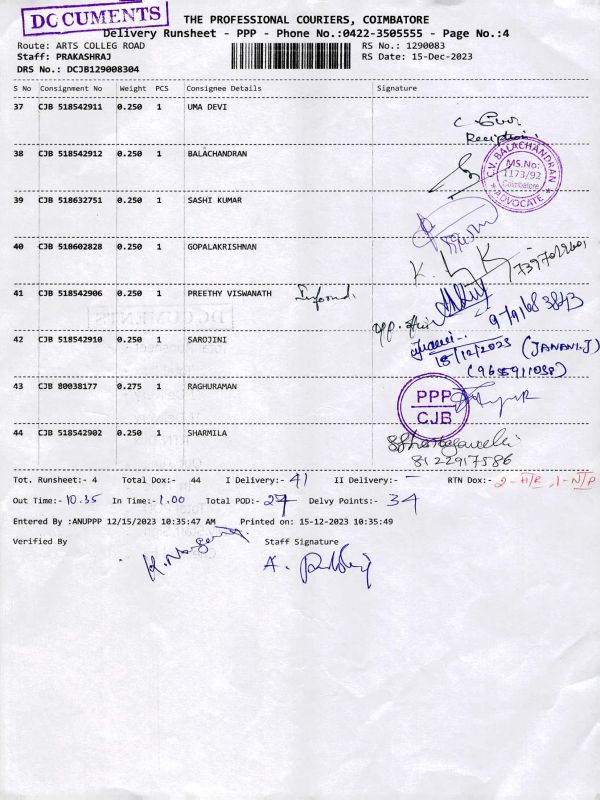 DOCUMENTS
THE PROFESSIONAL COURIERS, COIMBATORE
Delivery Runsheet - PPP - Phone No.:0422-3505555 - Page No.:4
Route: ARTS COLLEG ROAD RS No.: 1290083
Staff: PRAKASHRAJ RS Date: 15-Dec-2023
DRS No.: DCJB129008304
S No Consignment No Weight PCS Consignee Details Signature
37 CJB 518542911 0.250 1 UMA DEVI
Reception
38 CJB 518542912 0.250 1 BALACHANDRAN
C.V. BALACHANDRAN
MS.No:
1173/92
Coimbatore
ADVOCATE
39 CJB 518632751 0.250 1 SASHI KUMAR
40 CJB 518602828 0.250 1 GOPALAKRISHNAN
41 CJB 518542906 0.250 1 PREETHY VISWANATH
42 CJB 518542910 0.250 1 SAROJINI
15/12/2023 (JANANI.J)
(9655911038)
43 CJB 80038177 0.275 1 RAGHURAMAN
PPP
CJB
44 CJB 518542902 0.250 1 SHARMILA
8122917586
Tot. Runsheet:- 4 Total Dox:- 44 I Delivery:- 41 II Delivery:- - RTN Dox:-
Out Time:- 10.35 In Time:- 1.00 Total POD:- 27 Delvy Points:- 34
Entered By :ANUPPP 12/15/2023 10:35:47 AM Printed on: 15-12-2023 10:35:49
Verified By Staff Signature